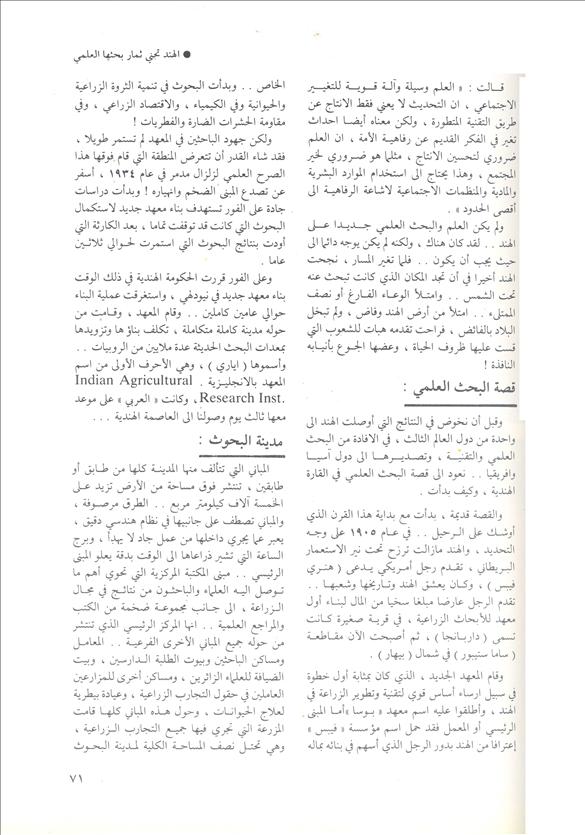 ● الهند تجني ثمار بحثها العلمي
قالت : « العلم وسيلة وآلة قوية للتغيير
الاجتماعي ، ان التحديث لا يعني فقط الانتاج عن
طريق التقنية المتطورة ، ولكن معناه أيضا احداث
تغير في الفكر القديم عن رفاهية الأمة ، ان العلم
ضروري لتحسين الانتاج ، مثلما هو ضروري لخير
المجتمع ، وهذا يحتاج الى استخدام الموارد البشرية
والمادية والمنظمات الاجتماعية لاشاعة الرفاهية الى
أقصى الحدود » .
ولم يكن العلم والبحث العلمي جديدا على
الهند .. لقد كان هناك ، ولكنه لم يكن يوجه دائما الى
حيث يجب أن يكون .. فلما تغير المسار ، نجحت
الهند أخيرا في أن تجد المكان الذي كانت تبحث عنه
تحت الشمس .. وامتلأ الوعاء الفارغ أو نصف
الممتلىء .. امتلأ من أرض الهند وفاض ، ولم تبخل
البلاد بالفائض ، فراحت تقدمه هبات للشعوب التي
قست عليها ظروف الحياة ، وعضها الجوع بأنيابه
النافذة !
قصة البحث العلمي :
وقبل أن نخوض في النتائج التي أوصلت الهند الى
واحدة من دول العالم الثالث ، في الافادة من البحث
العلمي والتقنية ، وتصديرها الى دول آسيا
وافريقيا .. نعود الى قصة البحث العلمي في القارة
الهندية ، وكيف بدأت .
والقصة قديمة ، بدأت مع بداية هذا القرن الذي
أوشك على الرحيل .. في عام ١٩٠٥ على وجه
التحديد ، والهند مازالت ترزح تحت نير الاستعمار
البريطاني ، تقدم رجل أمريكي يدعى ( هنري
فيبس ) ، وكان يعشق الهند وتاريخها وشعبها ..
تقدم الرجل عارضا مبلغا سخيا من المال لبناء أول
معهد للأبحاث الزراعية ، في قرية صغيرة كانت
تسمى ( داربانجا ) ، ثم أصبحت الآن مقاطعة
( ساما ستيبور ) في شمال ( بيهار ) .
وقام المعهد الجديد ، الذي كان بمثابة أول خطوة
في سبيل ارساء أساس قوي لتنمية وتطوير الزراعة في
الهند ، وأطلقوا عليه اسم معهد « بوسا » أما المبنى
الرئيسي أو المعمل فقد حمل اسم مؤسسة « فيبس »
إعترافا من الهند بدور الرجل الذي أسهم في بنائه بماله
الخاص .. وبدأت البحوث في تنمية الثروة الزراعية
والحيوانية وفي الكيمياء ، والاقتصاد الزراعي ، وفي
مقاومة الحشرات الضارة والفطريات !
ولكن جهود الباحثين في المعهد لم تستمر طويلا ،
فقد شاء القدر أن تتعرض المنطقة التي قام فوقها هذا
الصرح العلمي لزلزال مدمر في عام ١٩٣٤ ، أسفر
عن تصدع المبنى الضخم وانهياره ! وبدأت دراسات
جادة على الفور تستهدف بناء معهد جديد لاستكمال
البحوث التي كانت قد توقفت تماما ، بعد الكارثة التي
أودت بنتائج البحوث التي استمرت لحوالي ثلاثين
عاما .
وعلى الفور قررت الحكومة الهندية في ذلك الوقت
بناء معهد جديد في نيودلهي ، واستغرقت عملية البناء
حوالي عامين كاملين .. وقام المعهد ، وقامت من
حوله مدينة كاملة متكاملة ، تكلف بناؤ ها وتزويدها
بمعدات البحث الحديثة عدة ملايين من الروبيات ..
وأسموها ( اياري ) ، وهي الأحرف الأولى من اسم
المعهد بالانجليزية . Indian Agricultural
Research Inst. ، وكانت « العربي » على موعد
معها ثالث يوم وصولنا الى العاصمة الهندية ...
مدينة البحوث :
المباني التي تتألف منها المدينة كلها من طابق أو
طابقين ، تنتشر فوق مساحة من الأرض تزيد على
الخمسة آلاف كيلومتر مربع .. الطرق مرصوفة ،
والمباني تصطف على جانبيها في نظام هندسي دقيق ،
يعبر عما يجري داخلها من عمل جاد لا يهدأ ، وبرج
الساعة التي تشير ذراعاها الى الوقت بدقة يعلو المبنى
الرئيسي .. مبنى المكتبة المركزية التي تحوي أهم ما
توصل اليه العلماء والباحثون من نتائج في مجال
الزراعة ، الى جانب مجموعة ضخمة من الكتب
والمراجع العلمية .. انها المركز الرئيسي الذي تنتشر
من حوله جميع المباني الأخرى الفرعية .. المعامل
ومساكن الباحثين وبيوت الطلبة الدارسين ، وبيت
الضيافة للعلماء الزائرين ، ومساكن أخرى للمزارعين
العاملين في حقول التجارب الزراعية ، وعيادة بيطرية
لعلاج الحيوانات ، وحول هذه المباني كلها قامت
المزرعة التي تجري فيها جميع التجارب الزراعية ،
وهي تحتل نصف المساحة الكلية لمدينة البحوث
٧١